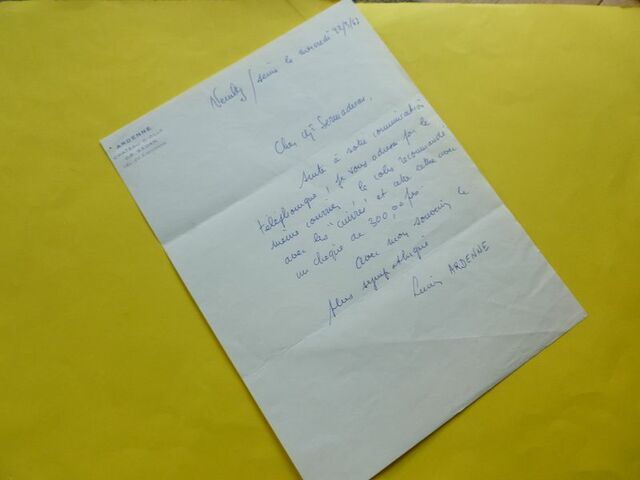 ARDENNE
CHATEAU D'ILLY
PR. SEDAN
Neuilly / Seine le mercredi 22/3/67
Cher Mr
Suite à notre communication
téléphonique, je vous adresse par le
même courrier, le colis recommandé
avec les "cuivres" et cette lettre avec
un chèque de 300,00 frs.
Avec mon souvenir le
plus sympathique
ARDENNE